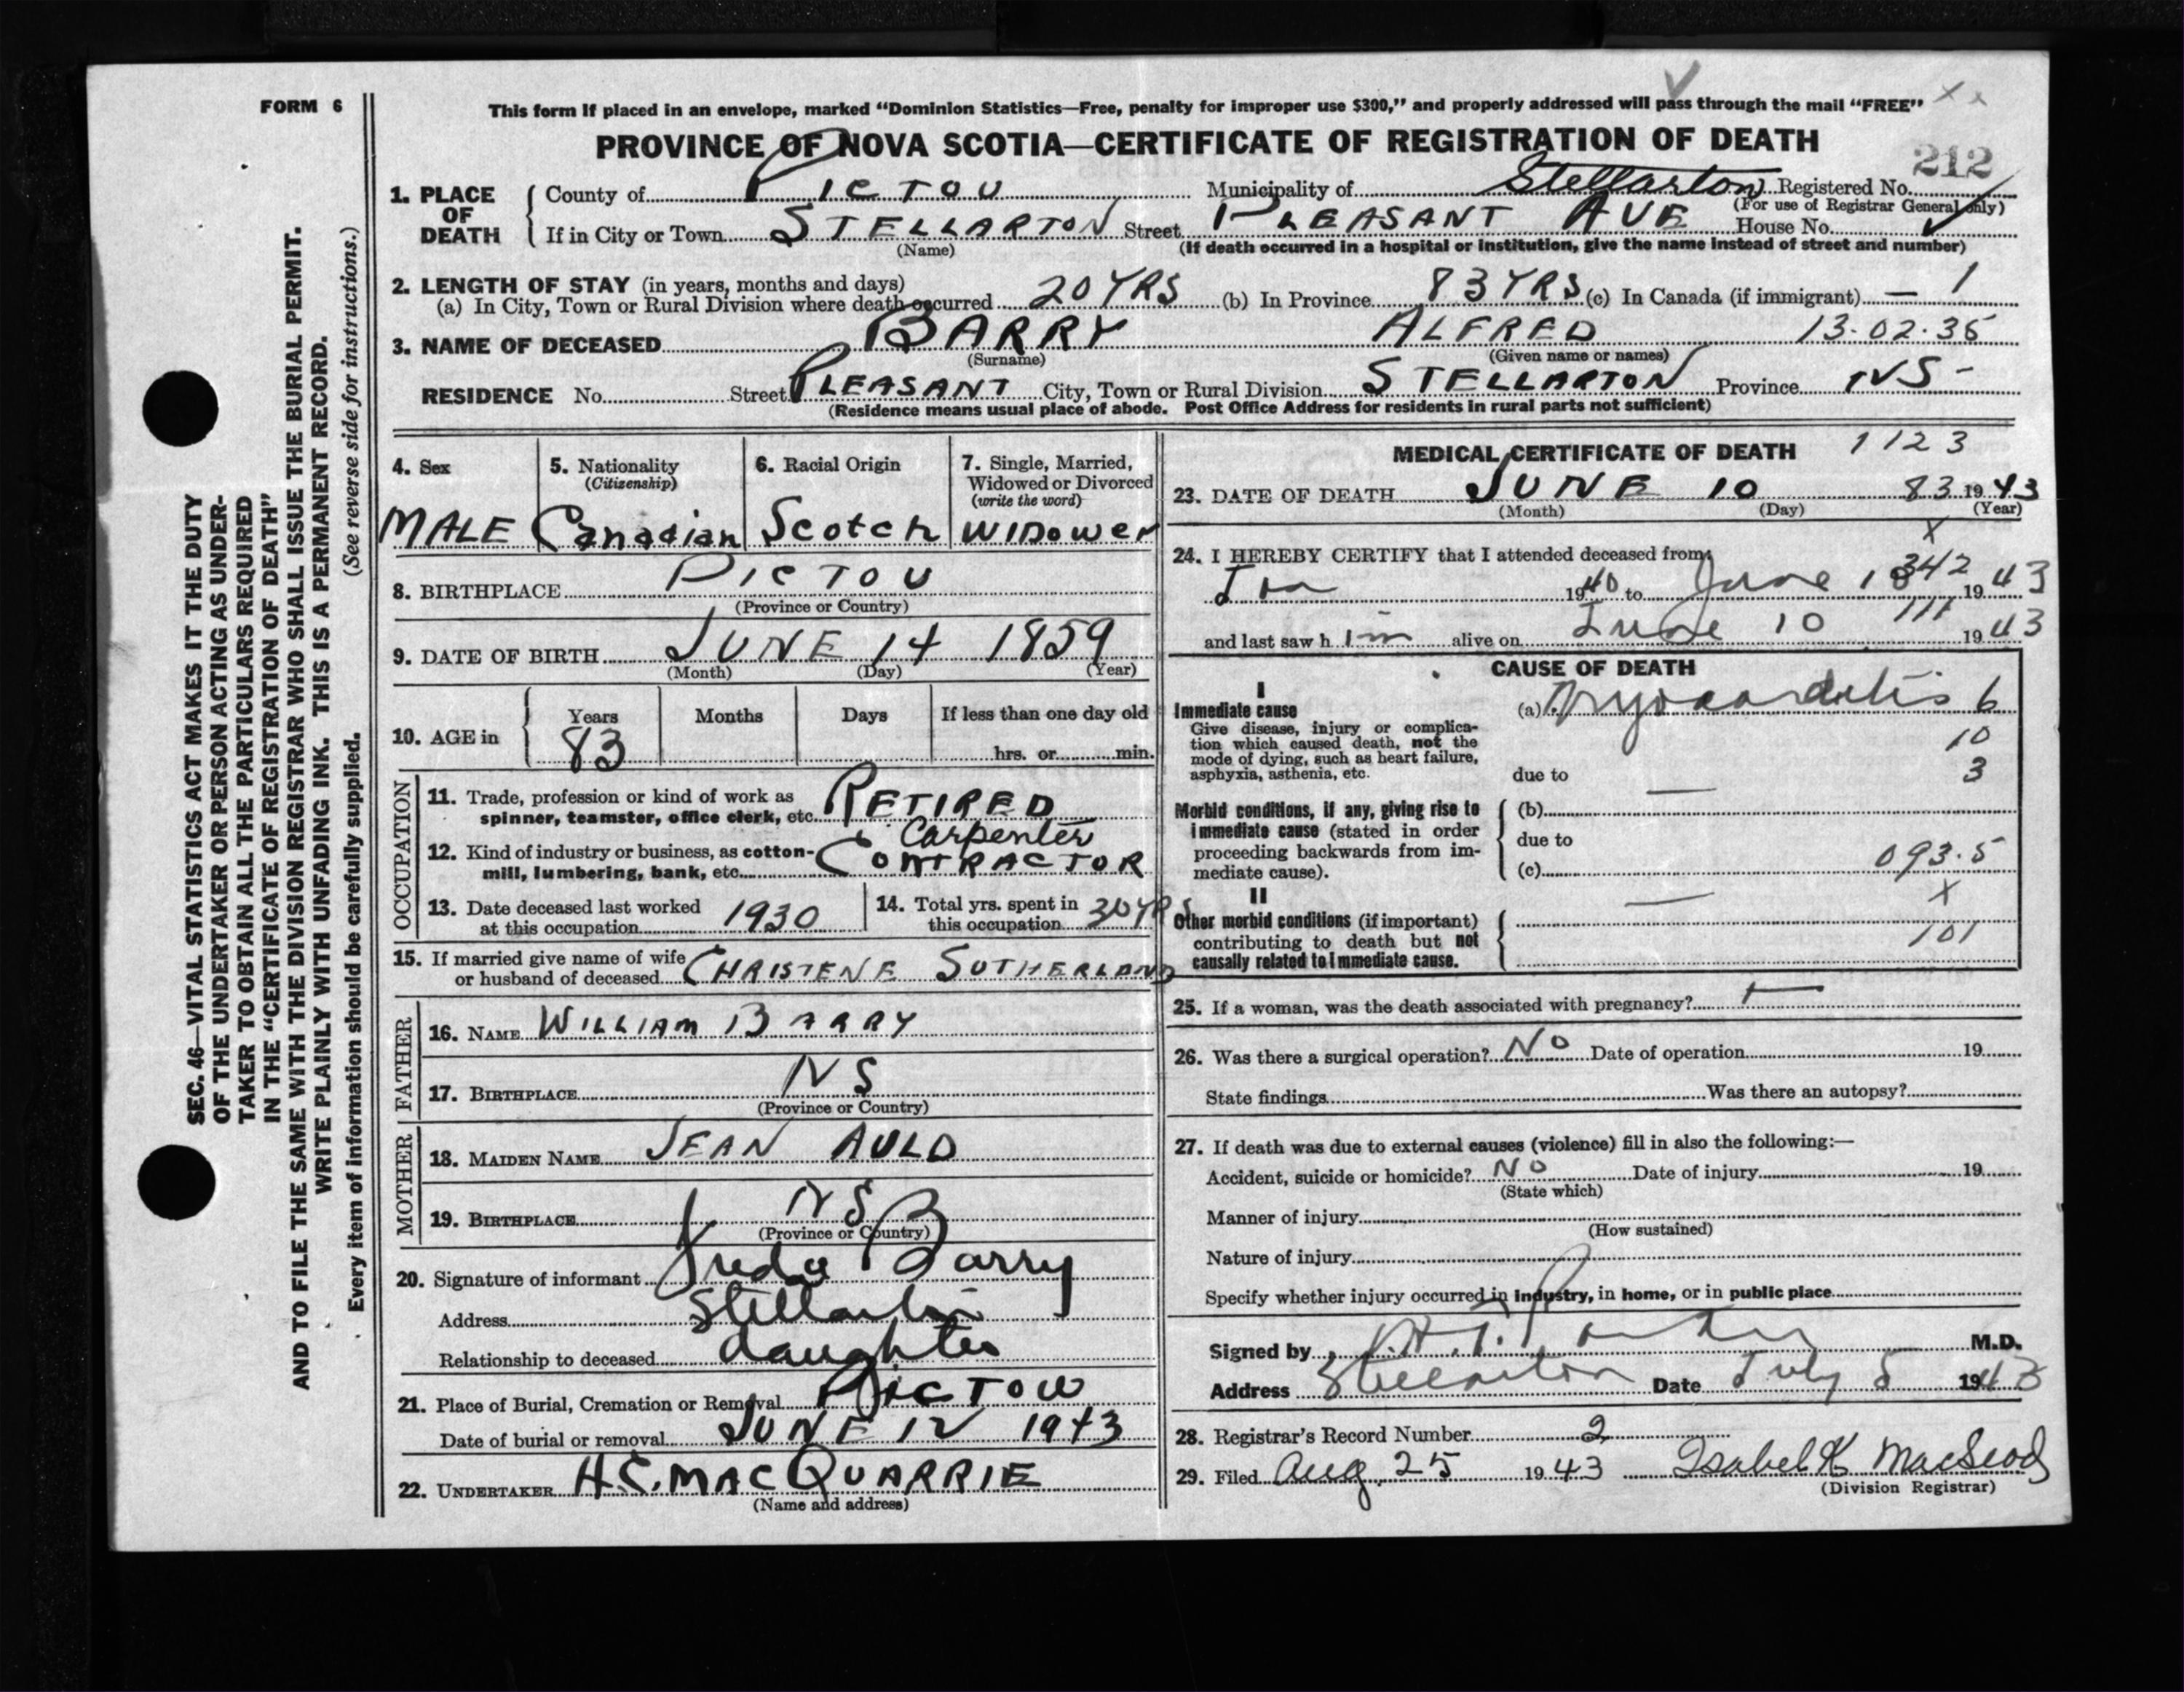 FORM 6
This form if placed in an envelope, marked “Dominion Statistics—Free, penalty for improper use $300,” and properly addressed will pass through the mail “FREE”
PROVINCE OF NOVA SCOTIA—CERTIFICATE OF REGISTRATION OF DEATH
212
1. PLACE OF DEATH
County of PICTOU Municipality of Stellarton Registered No.
(For use of Registrar General only)
If in City or Town STELLARTON Street PLEASANT AVE House No.
(Name) (If death occurred in a hospital or institution, give the name instead of street and number)
2. LENGTH OF STAY (in years, months and days)
(a) In City, Town or Rural Division where death occurred 20 YRS (b) In Province 83 YRS (c) In Canada (if immigrant) — 1
3. NAME OF DECEASED BARRY ALFRED 13.02.35
(Surname) (Given name or names)
RESIDENCE No. Street PLEASANT City, Town or Rural Division STELLARTON Province NS-
(Residence means usual place of abode. Post Office Address for residents in rural parts not sufficient)
4. Sex
MALE
5. Nationality
(Citizenship)
Canadian
6. Racial Origin
Scotch
7. Single, Married,
Widowed or Divorced
(write the word)
WIDower
8. BIRTHPLACE PICTOU
(Province or Country)
9. DATE OF BIRTH JUNE 14 1859
(Month) (Day) (Year)
10. AGE in
Years Months Days If less than one day old
83 hrs. or min.
OCCUPATION
11. Trade, profession or kind of work as
spinner, teamster, office clerk, etc. RETIRED
Carpenter
12. Kind of industry or business, as cotton-
mill, lumbering, bank, etc. CONTRACTOR
13. Date deceased last worked
at this occupation 1930
14. Total yrs. spent in
this occupation 30 YRS
15. If married give name of wife
or husband of deceased CHRISTENE SUTHERLAND
FATHER
16. NAME WILLIAM BARRY
17. BIRTHPLACE NS
(Province or Country)
MOTHER
18. MAIDEN NAME JEAN AULD
19. BIRTHPLACE NS
(Province or Country)
20. Signature of informant Freda Barry
Address Stellarton
Relationship to deceased daughter
21. Place of Burial, Cremation or Removal PICTOU
Date of burial or removal JUNE 12 1943
22. UNDERTAKER H.C. MACQUARRIE
(Name and address)
MEDICAL CERTIFICATE OF DEATH 1123
23. DATE OF DEATH JUNE 10 83 1943
(Month) (Day) (Year)
X
24. I HEREBY CERTIFY that I attended deceased from
1940 to June 10 342 1943
and last saw him alive on June 10 111 1943
CAUSE OF DEATH
I
Immediate cause
Give disease, injury or complica-
tion which caused death, not the
mode of dying, such as heart failure,
asphyxia, asthenia, etc.
(a) Myocarditis 6
10
due to 3
Morbid conditions, if any, giving rise to
immediate cause (stated in order
proceeding backwards from im-
mediate cause).
(b)
due to
(c) 093.5
X
II
Other morbid conditions (if important)
contributing to death but not
causally related to immediate cause.
101
25. If a woman, was the death associated with pregnancy?
26. Was there a surgical operation? No Date of operation 19
State findings Was there an autopsy?
27. If death was due to external causes (violence) fill in also the following:—
Accident, suicide or homicide? No Date of injury 19
(State which)
Manner of injury
(How sustained)
Nature of injury
Specify whether injury occurred in industry, in home, or in public place
Signed by M.D.
Address Stellarton Date July 5 1943
28. Registrar's Record Number 2
29. Filed Aug. 25 1943 Isabel K MacLeod
(Division Registrar)
SEC. 46—VITAL STATISTICS ACT MAKES IT THE DUTY
OF THE UNDERTAKER OR PERSON ACTING AS UNDER-
TAKER TO OBTAIN ALL THE PARTICULARS REQUIRED
IN THE “CERTIFICATE OF REGISTRATION OF DEATH”
AND TO FILE THE SAME WITH THE DIVISION REGISTRAR WHO SHALL ISSUE THE BURIAL PERMIT.
WRITE PLAINLY WITH UNFADING INK. THIS IS A PERMANENT RECORD.
Every item of information should be carefully supplied. (See reverse side for instructions.)